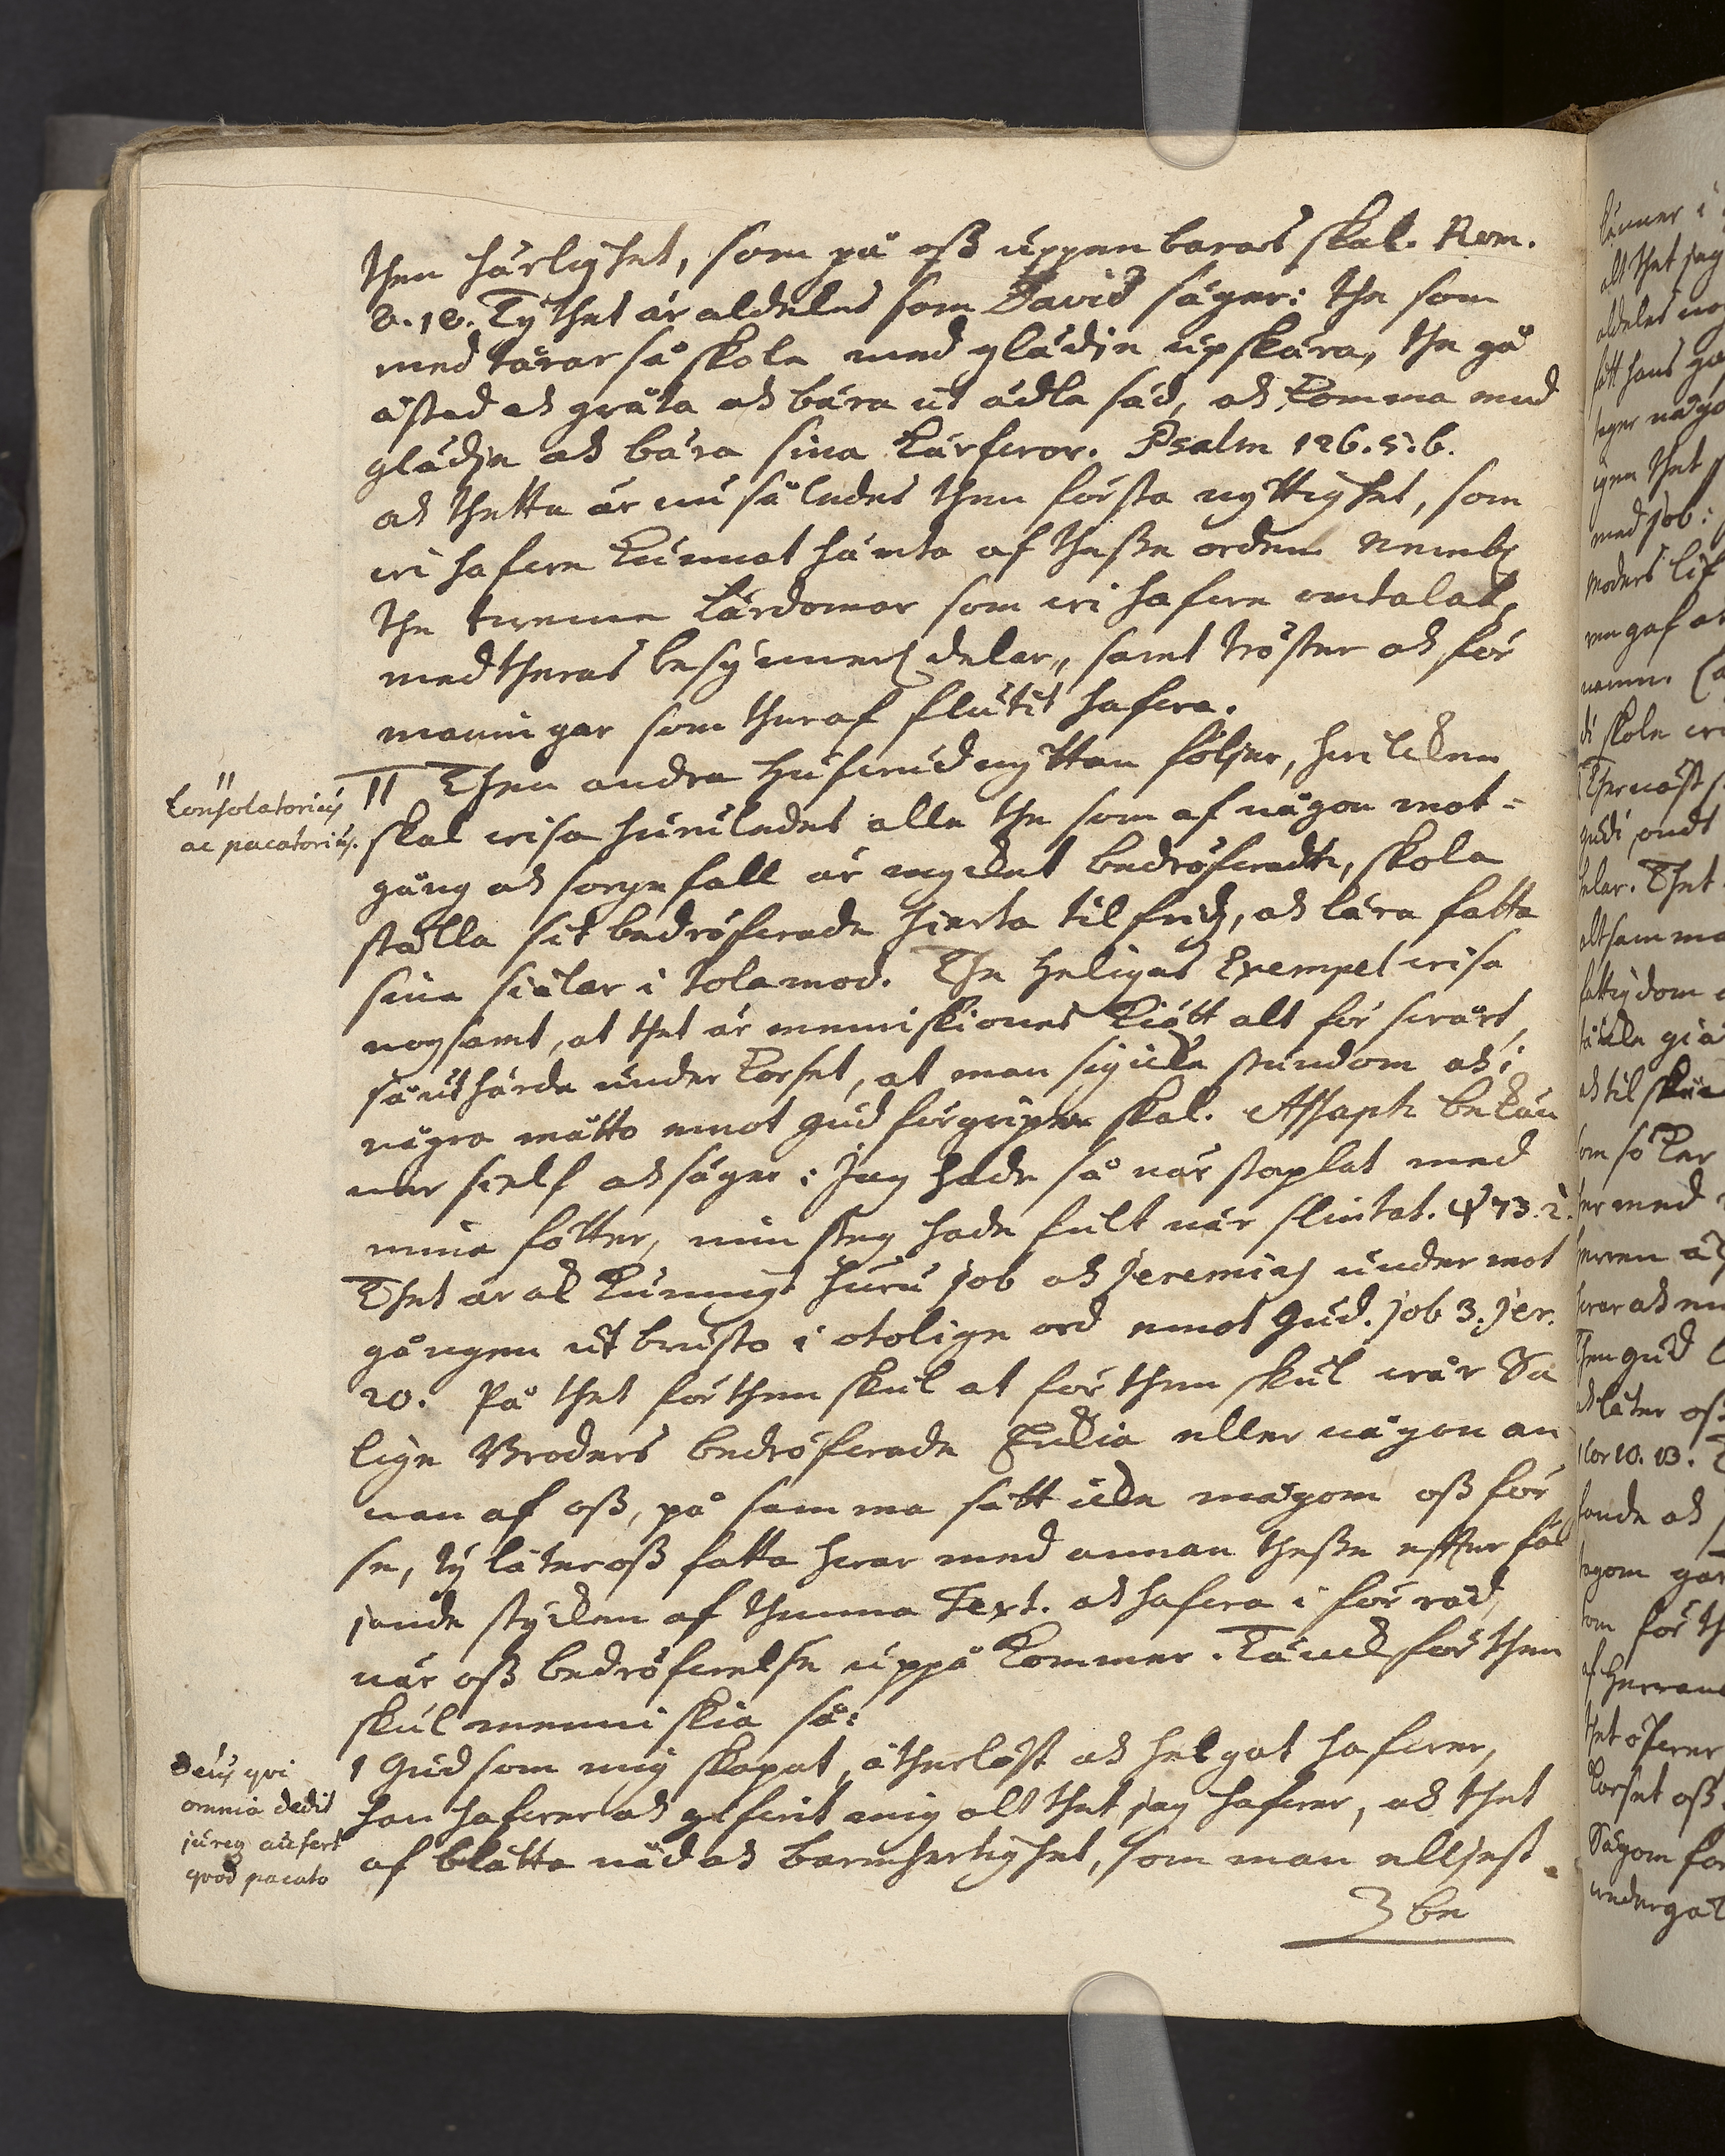 then härlighet, som på oß uppenbaras skal. Rom.
8. 18. Ty thet är aldeles som David säger: the som
med tårar så skole med glädie upskära, the gå
åstad och gråta och bära ut ädla säd, och komma med
glädie och bära sina kärfvar. Psalm 126. 5. 6.
och thetta är nu således then första nyttighet, som
wi hafwe kunnat hämta af theße orden Neml.
the twenne lärdomar som wi hafwe omtalat,
med theras besynnerl. delar, samt tröster och för
maningar som theraf flutit hafwa.
II Then andra hufwudnyttan följer, hwilcken
skal wisa huruledes alla the som af någon mot=
gång och sorgefall är mycket bedröfwadt, skola
ställa sit bedröfwade hierta tilfrids, och lära fatta
sina siälar i tolamod. The heligas Exempel wisa
nogsamt, at thet är menniskiones kiött alt för swårt,
så uthärda under korset, at man sig icke stundom och i
några måtto emot Gud förgripa skal. Assaph bekän
ner sielf och säger: Jag hade så när staplat med
mina fötter, min steg hade fult när slintat. Ψ 73. 2.
Thet är ock kunnigt huru Job och Jeremias under mot
gången ut brusto i otolige ord emot Gud. Job 3. Jer.
20. På thet för then skul at för then skul wår Sa
lige Broders bedröfwade Enckia eller någon an
nan af oß, på samma sätt icke mågom oß för
se, ty låter oß fatta hwar med annan theße efter föl
jande stycken af thenna Text. och hafwa i förråd,
när oß bedröfwelse uppå kommer. Tänck för then
skul menniskia så:
1 Gud som mig skapat, återlöst och helgat hafwer,
han hafwer och gifwit mig alt thet jag hafwer, och thet
af blåtta nåd och barmhertighet, som man elljest
be
II
Consolatorius
ac pacatorius.
Deus qvi
omnia dedit
jure aufert
qvod pacato